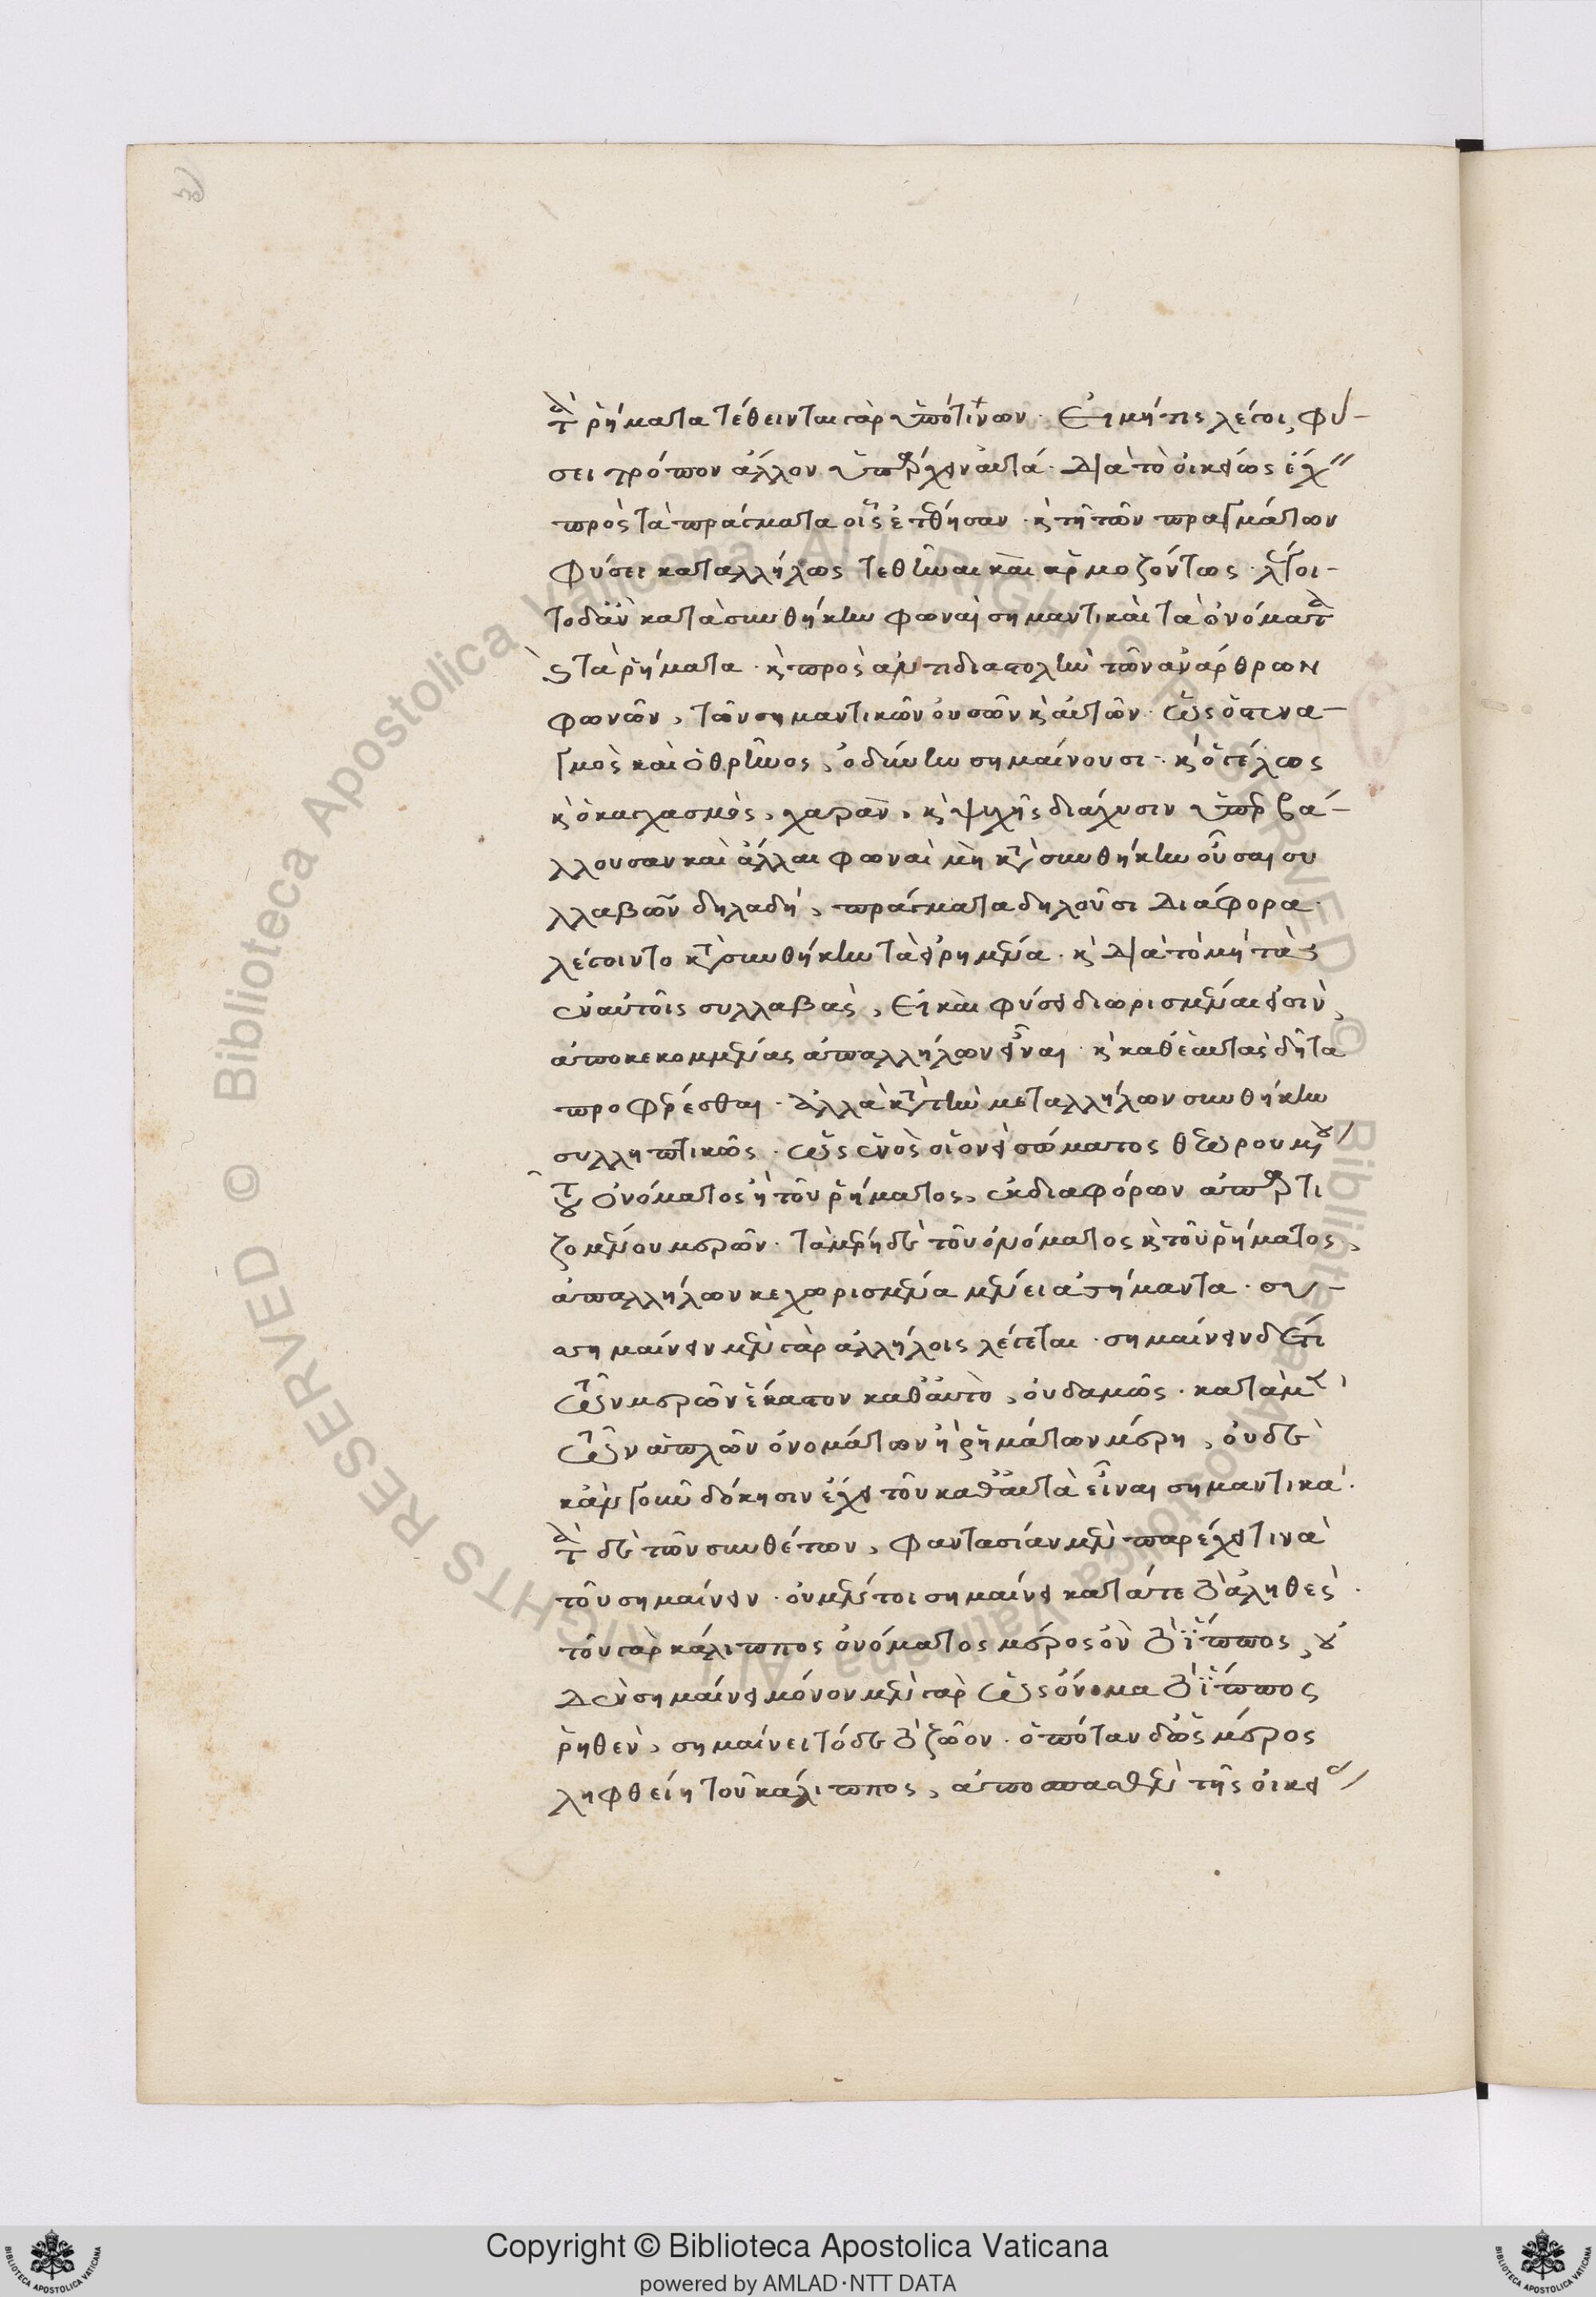 τὰ ῥήματα τέθεινται γὰρ ὑπό τινων. Εἰ μή τις λέγοι, φύ-
σει τρόπον ἄλλον ὑπάρχειν αὐτά. Διὰ τὸ οἰκείως ἔχειν
πρὸς τὰ πράγματα οἷς ἐτέθησαν. κ τῆ τῶν πραγμάτων
φύσει καταλλήλως τεθῆναι καὶ ἁρμοζόντως. λέγοι-
το δ' ἂν κατὰ συνθήκην φωναὶ σημαντικαὶ τὰ ὀνόματα
κ τὰ ῥήματα. κ πρὸς ἀντιδιαστολὴν τῶν ἀνάρθρων
φωνῶν, τῶν σημαντικῶν οὐσῶν κ αὐτῶν. ὡς ὁ στενα-
γμὸς καὶ ὁ θρῆνος, ὀδύνην σημαίνουσι. κ ὁ γέλως
κ ὁ καγχασμὸς, χαρὰν, κ ψυχῆς διάχυσιν ὑπερβά-
λλουσαν καὶ ἄλλαι φωναὶ μὴ κατὰ συνθήκην οὖσαι συ
λλαβῶν δηλαδή, πράγματα δηλοῦσι διάφορα.
λέγοιντο κατὰ συνθήκην τὰ εἰρημένα. κ διὰ τὸ μὴ τὰς
ἐν αὐτοῖς συλλαβὰς, εἰ καὶ φύσει διωρισμέναι εἰσὶν,
ἀποκεκομμένας ἀπαλλήλων εἶναι. κ καθ' ἑαυτὰς δῆτα
προφέρεσθαι. ἀλλὰ κατὰ τὴν μεταλλήλων συνθήκην
συλληπτικῶς. ὡς ἑνὸς οἱονεὶ σώματος θεωρουμένου
τοῦ ὀνόματος ἢ τοῦ ῥήματος, ἐκ διαφόρων ἀπαρτι
ζομένου μερῶν. τὰ μέρη δὲ τοῦ ὀνόματος κ τοῦ ῥήματος,
ἀπαλλήλων κεχωρισμένα μένει ἀσήμαντα. συ-
σσημαίνειν μὲν γὰρ ἀλλήλοις λέγεται. σημαίνειν δέ τι
τῶν μερῶν ἕκαστον καθ' αὑτὸ, οὐδαμῶς. κατὰ μὲν
τῶν ἁπλῶν ὀνομάτων ἢ ῥημάτων μέρη, οὐδὲ
κἂν γοῦν δόκησιν ἔχει τοῦ καθ' αὑτὰ εἶναι σημαντικά.
τὰ δὲ τῶν συνθέτων, φαντασίαν μὲν παρέχει τινὰ
τοῦ σημαίνειν. οὐ μέντοι σημαίνει κατά γε τὸ ἀληθές.
τοῦ γὰρ κάλιππος ὀνόματος μέρος ὂν τὸ ἵππος, οὐ
δὲν σημαίνει μόνον μὲν γὰρ ὡς ὄνομα τὸ ἵππος
ῥηθὲν, σημαίνει τόδε τὸ ζῶον. ὁπόταν δ' ὡς μέρος
ληφθείη τοῦ κάλιππος, ἀποσπασθὲν τῆς οἰκεί